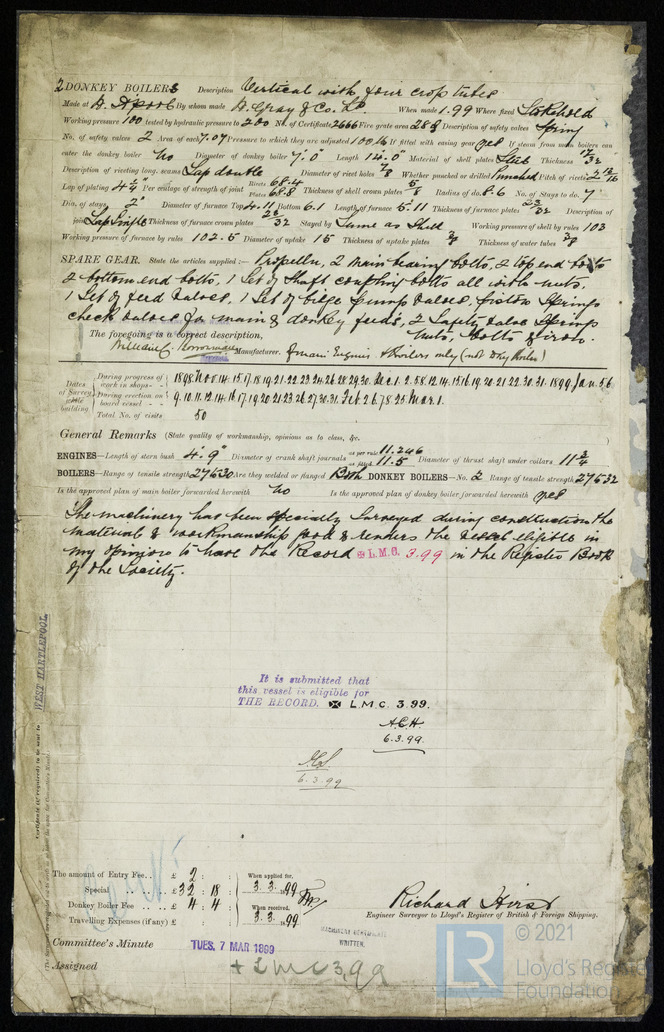 2 DONKEY BOILERS Description Vertical with four cross tubes
Made at By whom made W. Gray & Co. Ld When made 1.99 Where fixed Stokehold
Working pressure 100 tested by hydraulic pressure to 200 No. of Certificate 2666 Fire grate area 28 Description of safety valves Spring
No. of safety valves 2 Area of each 7.07 Pressure to which they are adjusted 100 If fitted with easing gear yes If steam from main boilers can
enter the donkey boiler No Diameter of donkey boiler 7'.0" Length 14'.0" Material of shell plates Steel Thickness 17/32
Description of riveting long. seams Lap double Diameter of rivet holes 7/8 Whether punched or drilled Punched Pitch of rivets 2
Lap of plating 4 Per centage of strength of joint Rivets 68.4 Plates 68.8 Thickness of shell crown plates 5/8 Radius of do. 8-6 No. of Stays to do. 7
Dia. of stays 2" Diameter of furnace Top 4.11 Bottom 6.1 Length of furnace 5.11 Thickness of furnace plates Description of
joint Lap Single Thickness of furnace crown plates Stayed by Same as Shell Working pressure of shell by rules 103
Working pressure of furnace by rules 102.5 Diameter of uptake 15 Thickness of uptake plates 3/8 Thickness of water tubes 3/8
SPARE GEAR. State the articles supplied :— Propeller, 2 main bearing bolts, 2 top end bolts
2 bottom end bolts, 1 Set of Shaft coupling bolts all with nuts.
1 Set of feed valves, 1 Set of bilge pump valves, piston Springs
check valves for main & donkey feeds, 2 Safety valve Springs
nuts, bolts & iron.
The foregoing is a correct description,
Manufacturer. main Engines & Boilers only (not Dky Boiler)
Dates of Survey while building
During progress of work in shops - - 1898. Nov. 14. 15. 17. 18. 19. 21. 22. 23. 24. 26. 28. 29. 30. Dec. 1. 2. 5. 8. 12. 14. 15. 16. 19. 20. 21. 22. 30. 31. 1899. Jan. 5. 6.
During erection on board vessel - - - 9. 10. 11. 12. 14. 16. 17. 19. 20. 21. 23. 26. 27. 30. 31. Feb. 2. 6. 7. 8. 25. Mar. 1.
Total No. of visits 50
General Remarks (State quality of workmanship, opinions as to class, &c.
ENGINES—Length of stern bush 4'. 9" Diameter of crank shaft journals as per rule 11.246 as fitted 11.5 Diameter of thrust shaft under collars 11 3/4
BOILERS—Range of tensile strength 27 & 30 Are they welded or flanged Both DONKEY BOILERS—No. 2 Range of tensile strength 27 & 32
Is the approved plan of main boiler forwarded herewith No Is the approved plan of donkey boiler forwarded herewith yes
The machinery has been specially Surveyed during construction, the
material & workmanship good & renders the vessel eligible in
my opinion to have the Record ✠ L.M.C. 3.99 in the Register Book
of the Society.
WEST HARTLEPOOL
It is submitted that
this vessel is eligible for
THE RECORD. ✠ L.M.C. 3.99.
A.E.H.
6.3.99.
6.3.99
The amount of Entry Fee.. £ 2 : : When applied for,
Special £ 32 : 18 : 3. 3. 1899
Donkey Boiler Fee £ 4 : 4 : When received,
Travelling Expenses (if any) £ : : 3. 3. 1899
Richard Hirst
Engineer Surveyor to Lloyd's Register of British & Foreign Shipping.
MACHINERY CERTIFICATE
WRITTEN.
Committee's Minute TUES. 7 MAR 1899
Assigned + LMC 3,99
LR © 2021
Lloyd's Register
Foundation